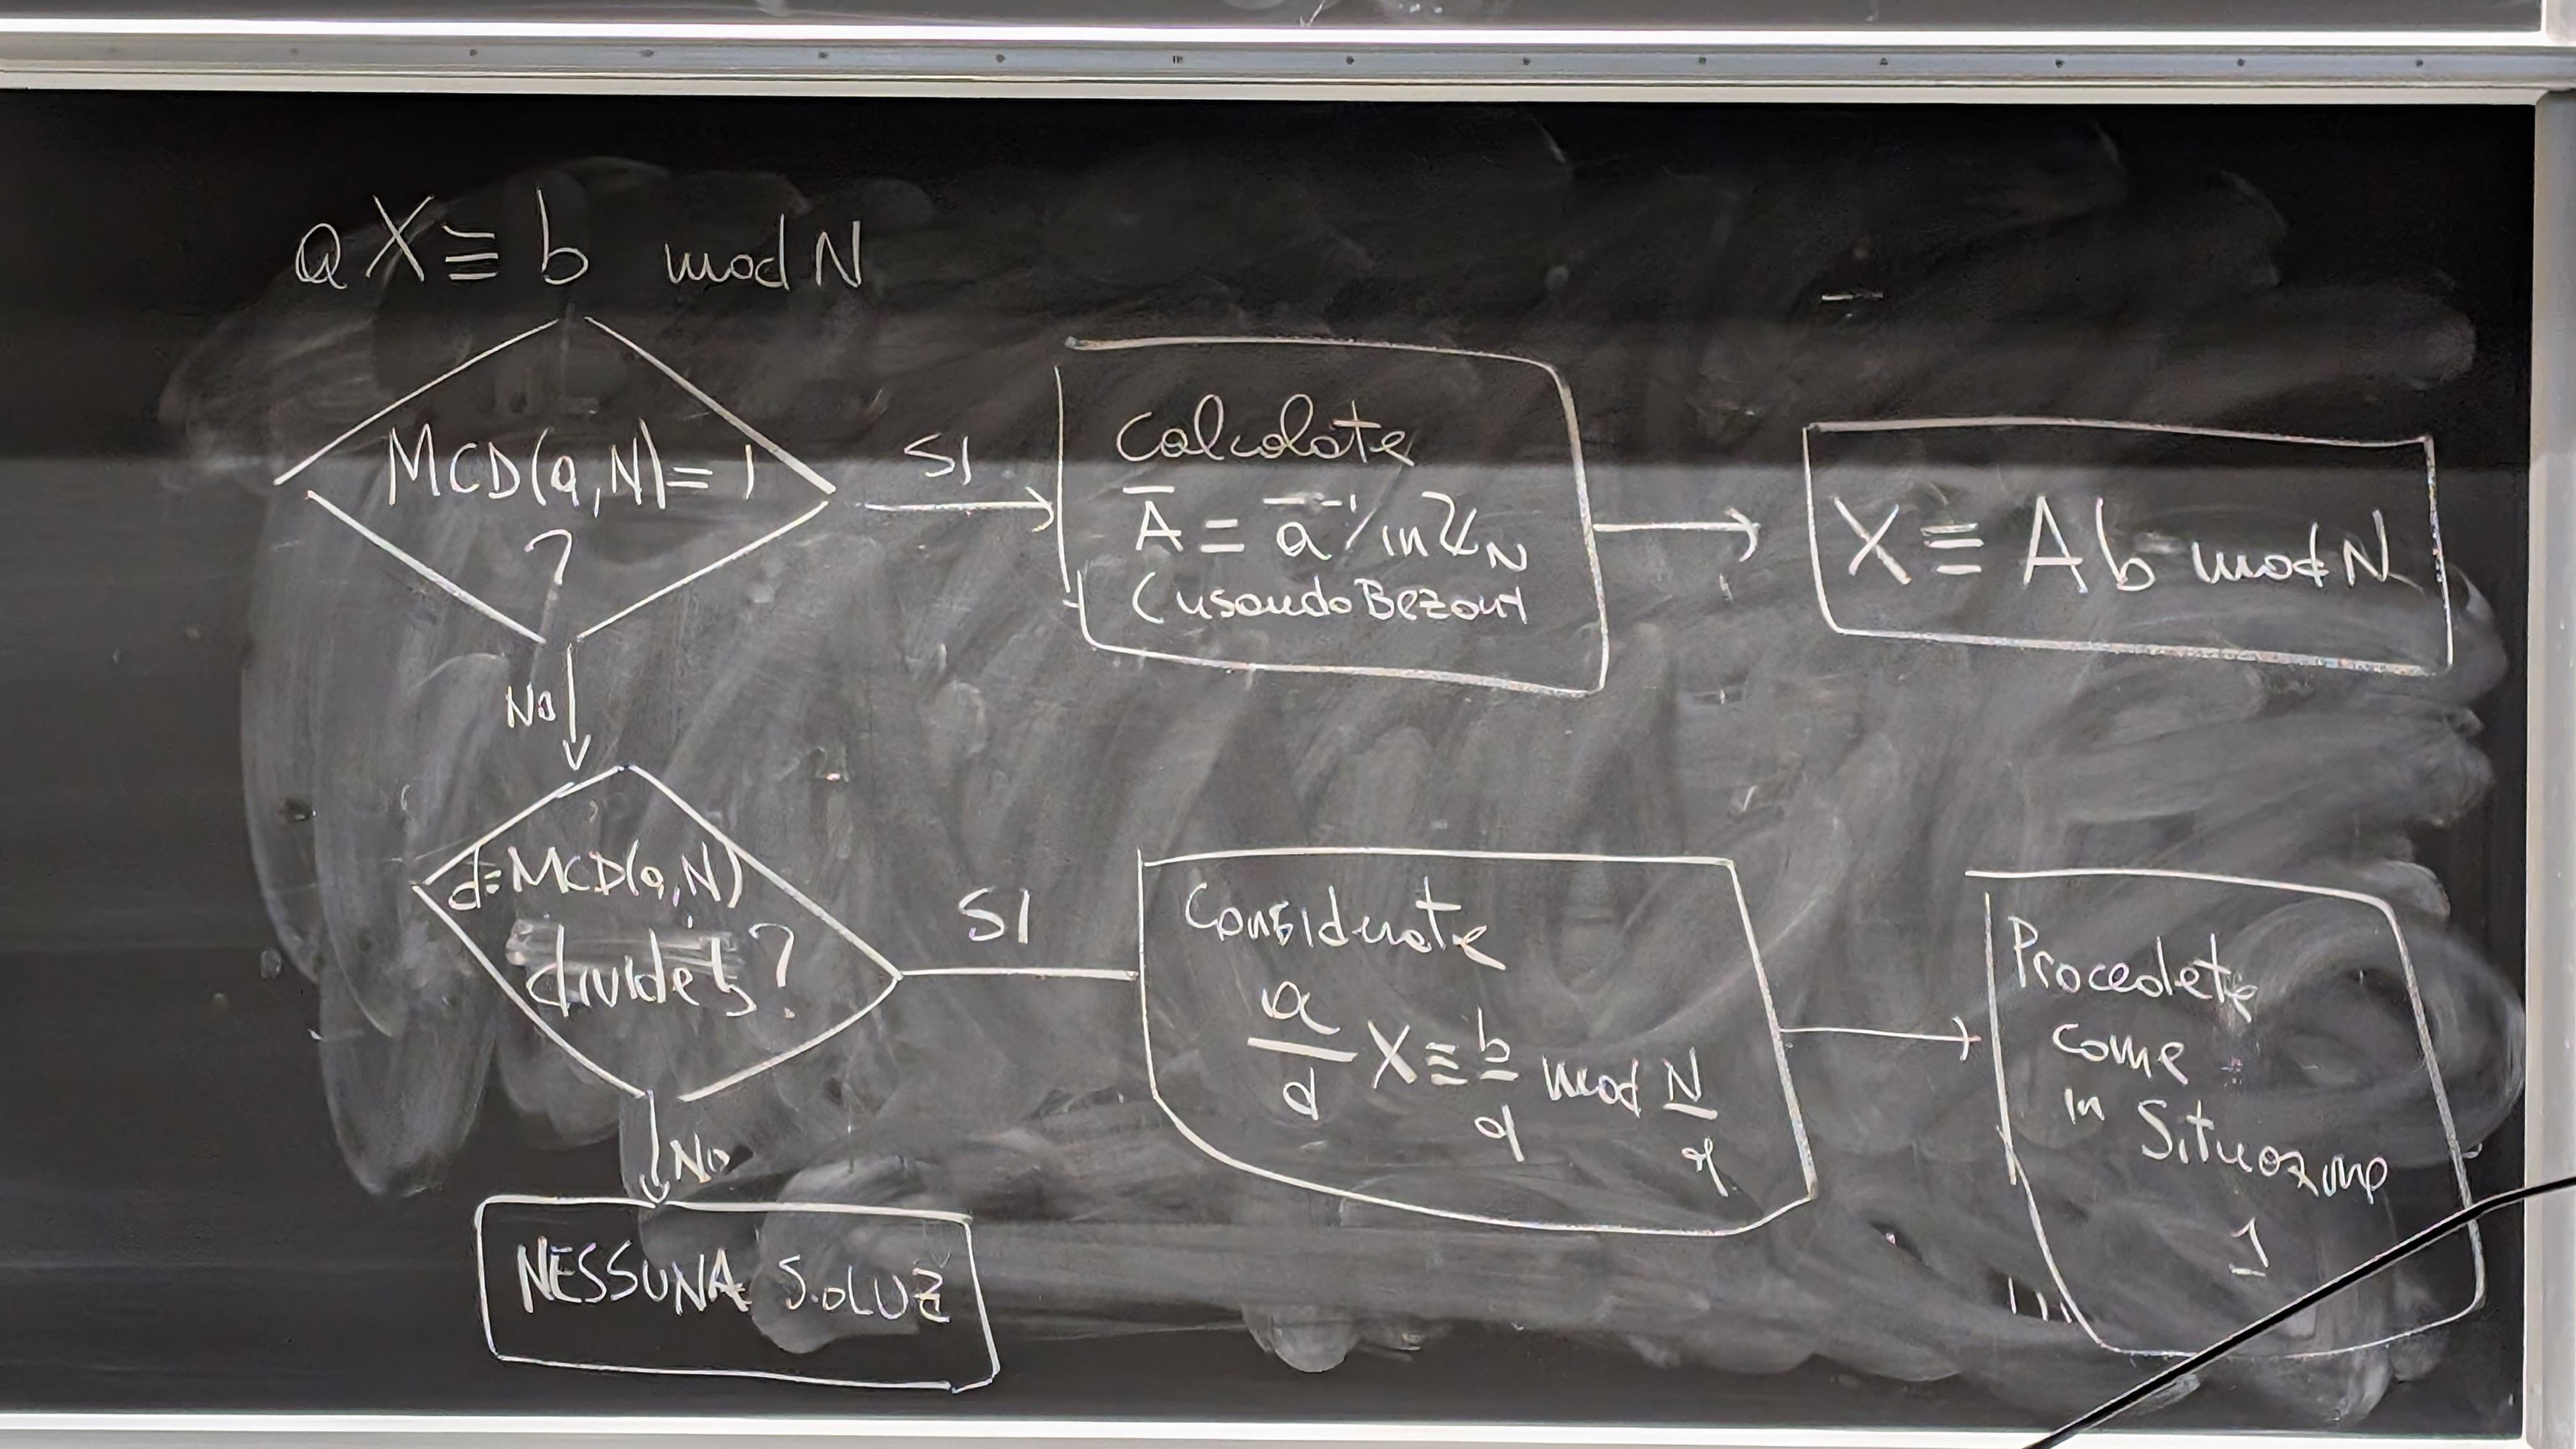 aX ≡ b mod N
MCD(a,N)=1
?
SI
Calcolate
A̅ = a̅⁻¹ in ℤ_N
(usando Bezout
X ≡ Ab mod N
No
d=MCD(a,N)
divide b?
SI
Considerate
a/d X ≡ b/d mod N/d
Procedete
come
in Situazione
1
No
NESSUNA SOLUZ